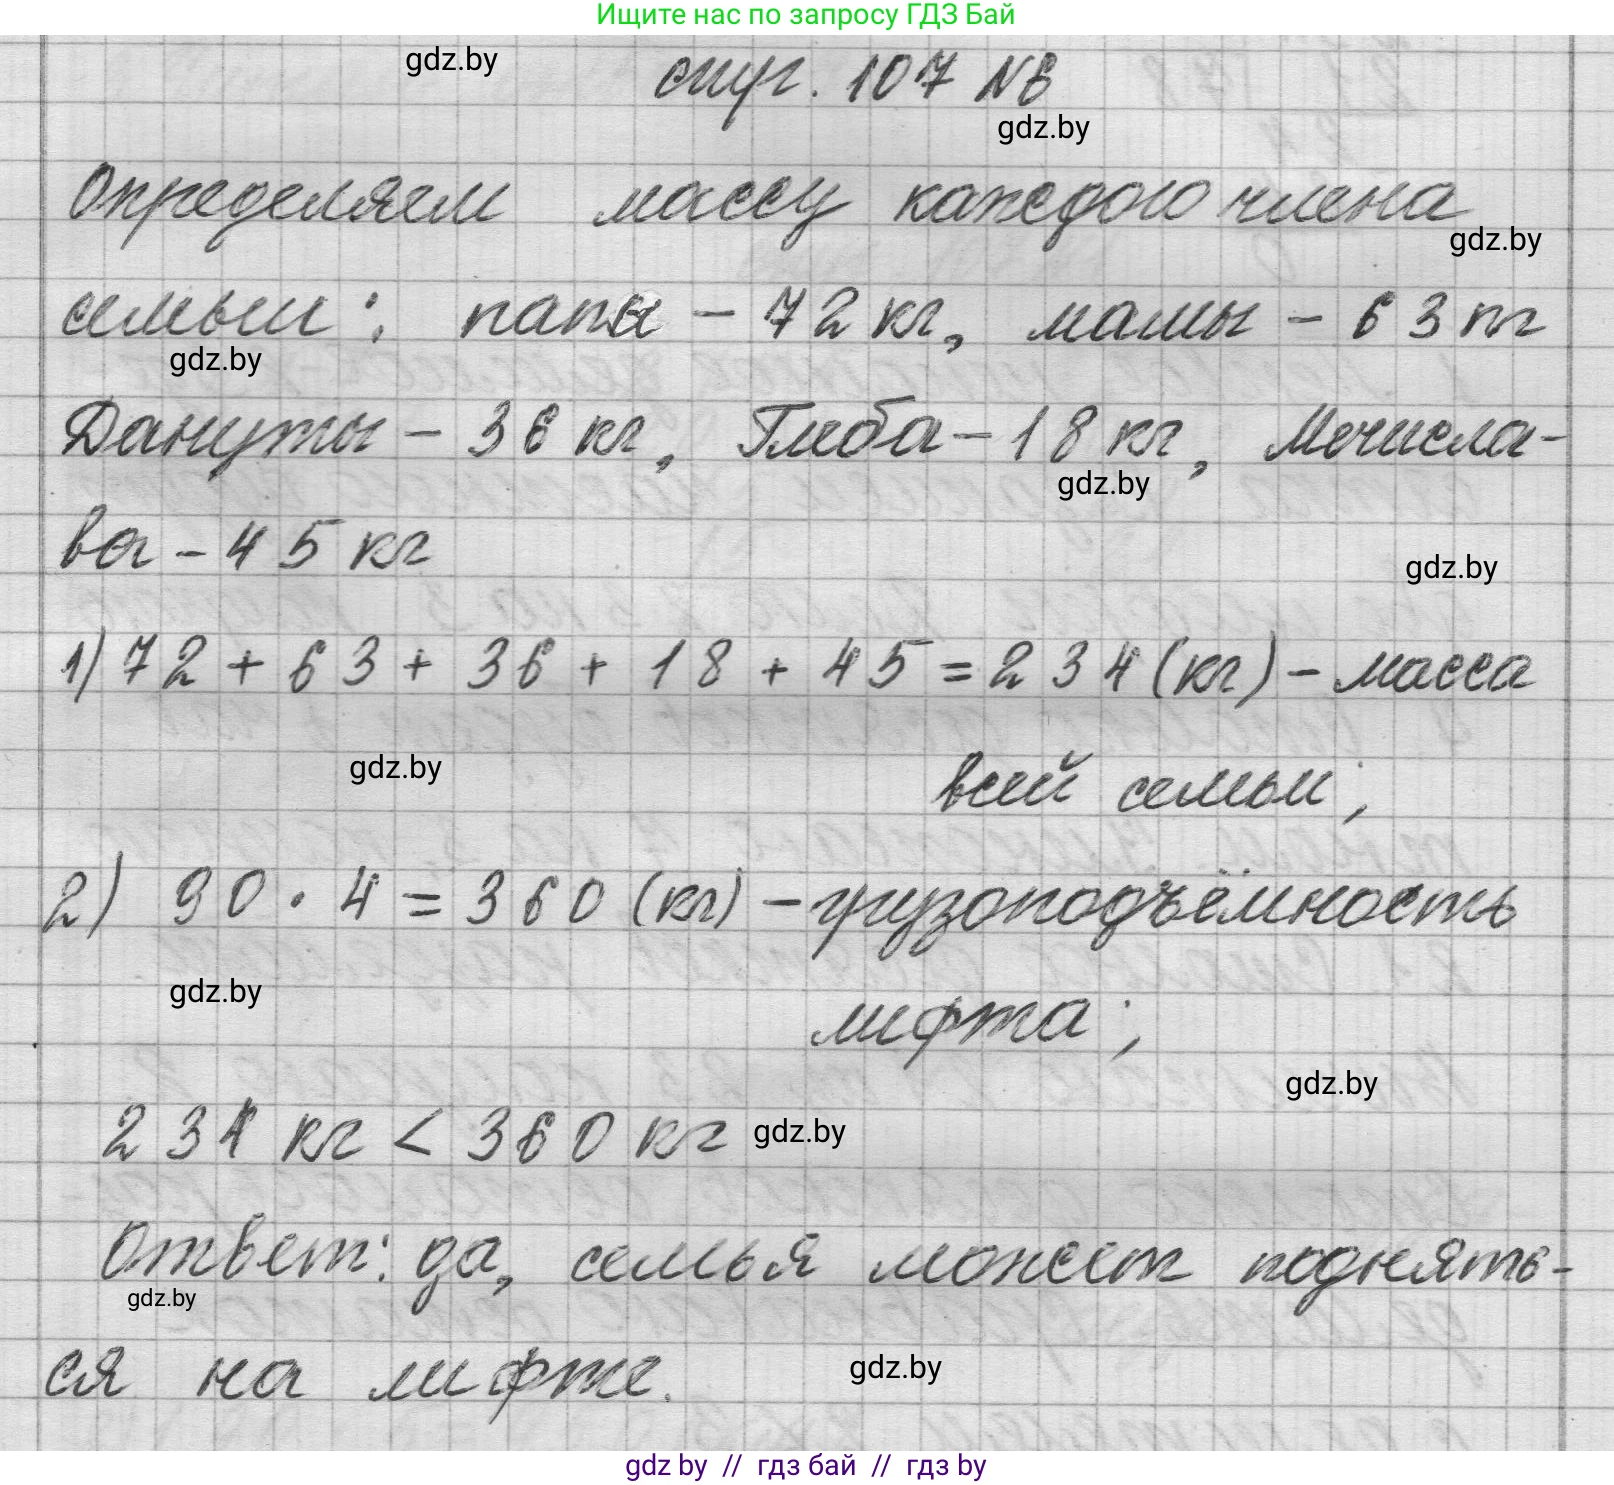 Ищите нас по запросу ГДЗ Бай
gdz.by
стр. 107 N6
gdz.by
Определяем массу каждого члена
gdz.by
семьи: папы – 72 кг, мамы – 63 кг
gdz.by
Дануты – 36 кг, Глеба – 18 кг, Мечисла-
gdz.by
ва – 45 кг
gdz.by
1) 72 + 63 + 36 + 18 + 45 = 234 (кг) – масса
gdz.by
всей семьи;
2) 90 · 4 = 360 (кг) – грузоподъёмность
gdz.by
лифта;
gdz.by
234 кг < 360 кг
gdz.by
Ответ: да, семья может поднять-
gdz.by
ся на лифте.
gdz.by
gdz by // гдз бай // гдз by